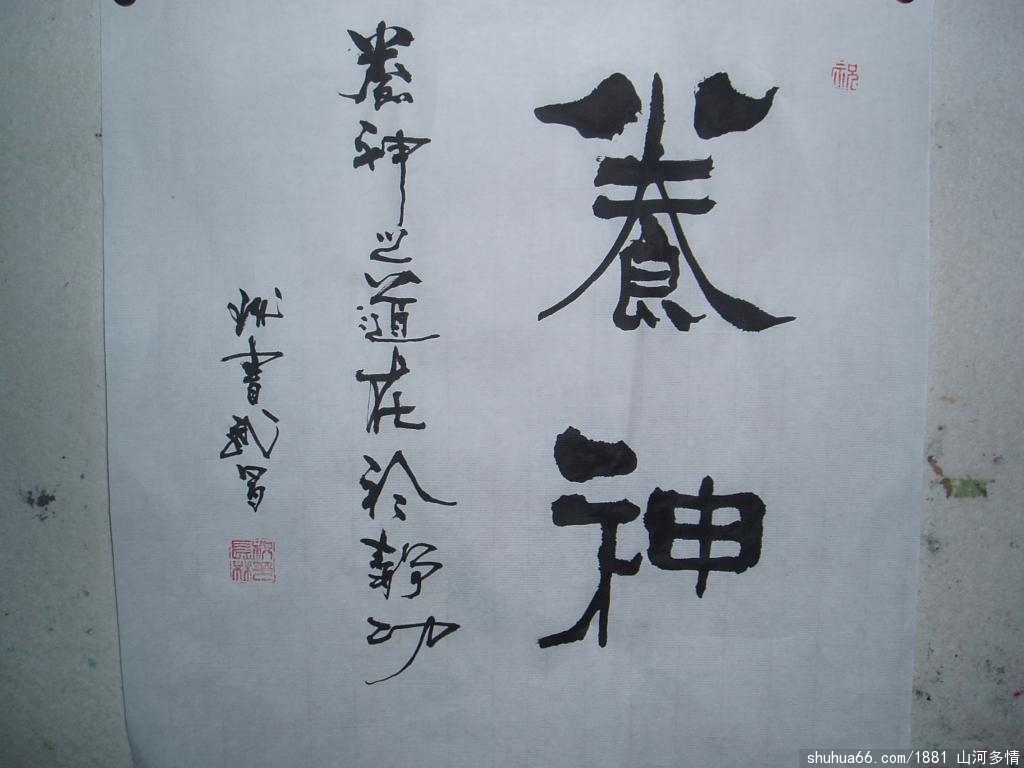 養神
養神之道在於靜功
書
shuhua66.com/1881 山河多情